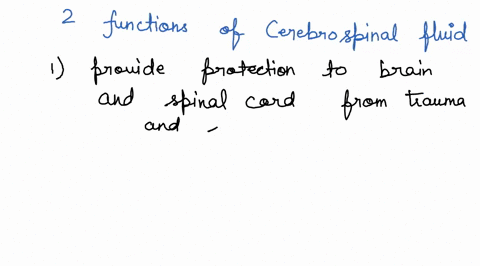 2 functions of Cerebrospinal fluid
1) provide protection to brain
and spinal cord from trauma
and